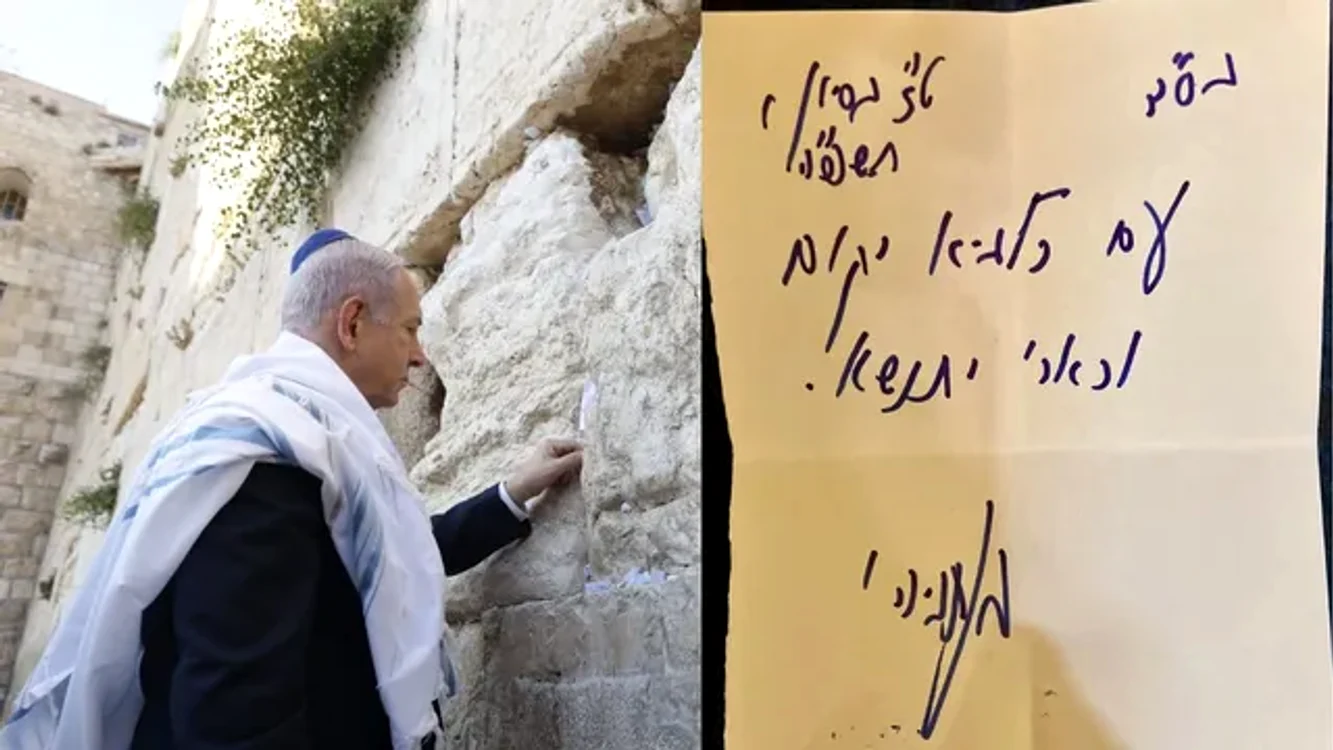 בס"ד
ט"ז בסיון
תשפ"ה
עם כלביא יקום
וכארי יתנשא.
ב נתניהו